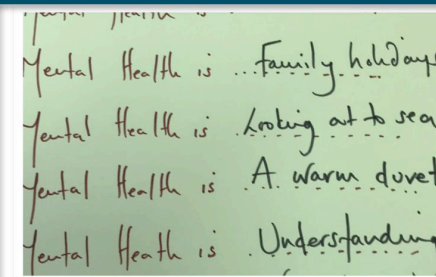 Mental Health is
Mental Health is ...Family holidays
Mental Health is .Looking out to sea
Mental Health is .A warm duvet
Mental Heath is .Understanding